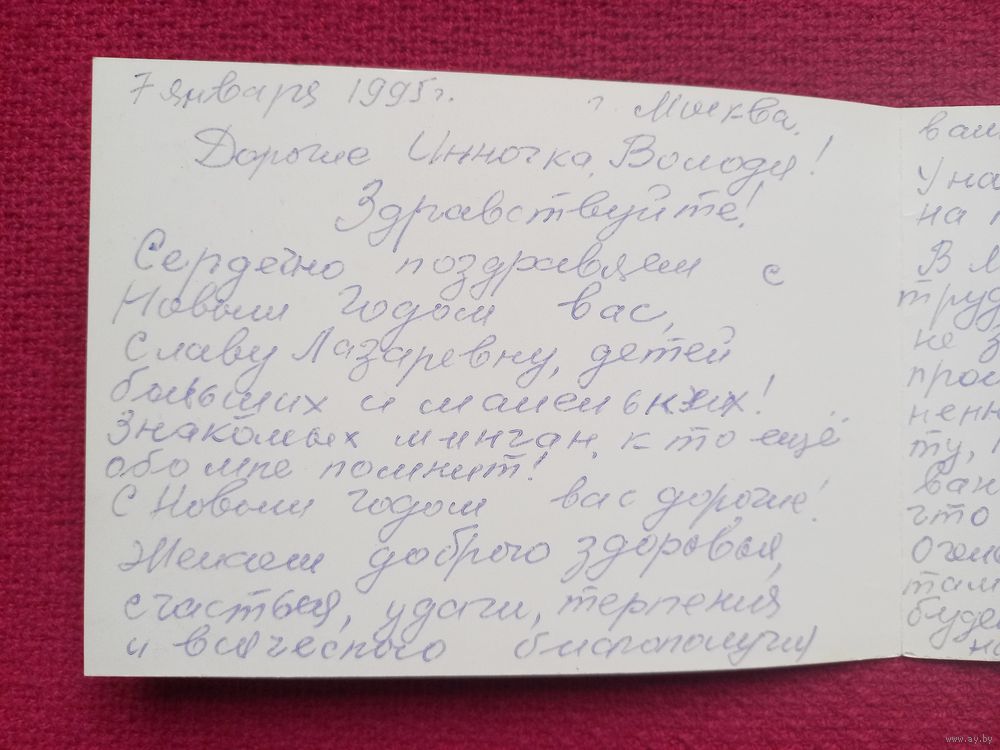 7 января 1995г.
г. Москва.
Дорогие Инночка, Володя!
Здравствуйте!
Сердечно поздравляем с
Новым Годом вас,
Славу Лазаревну, детей
больших и маленьких!
Знакомых минчан, кто ещё
обо мне помнит!
С Новым Годом вас дорогие!
Желаем доброго здоровья,
счастья, удачи, терпения
и всяческого благополучия
вам
У на
на
В М
труд
не з
пром
ненн
ту,
ван
что
там
буде
на
www.ay.by